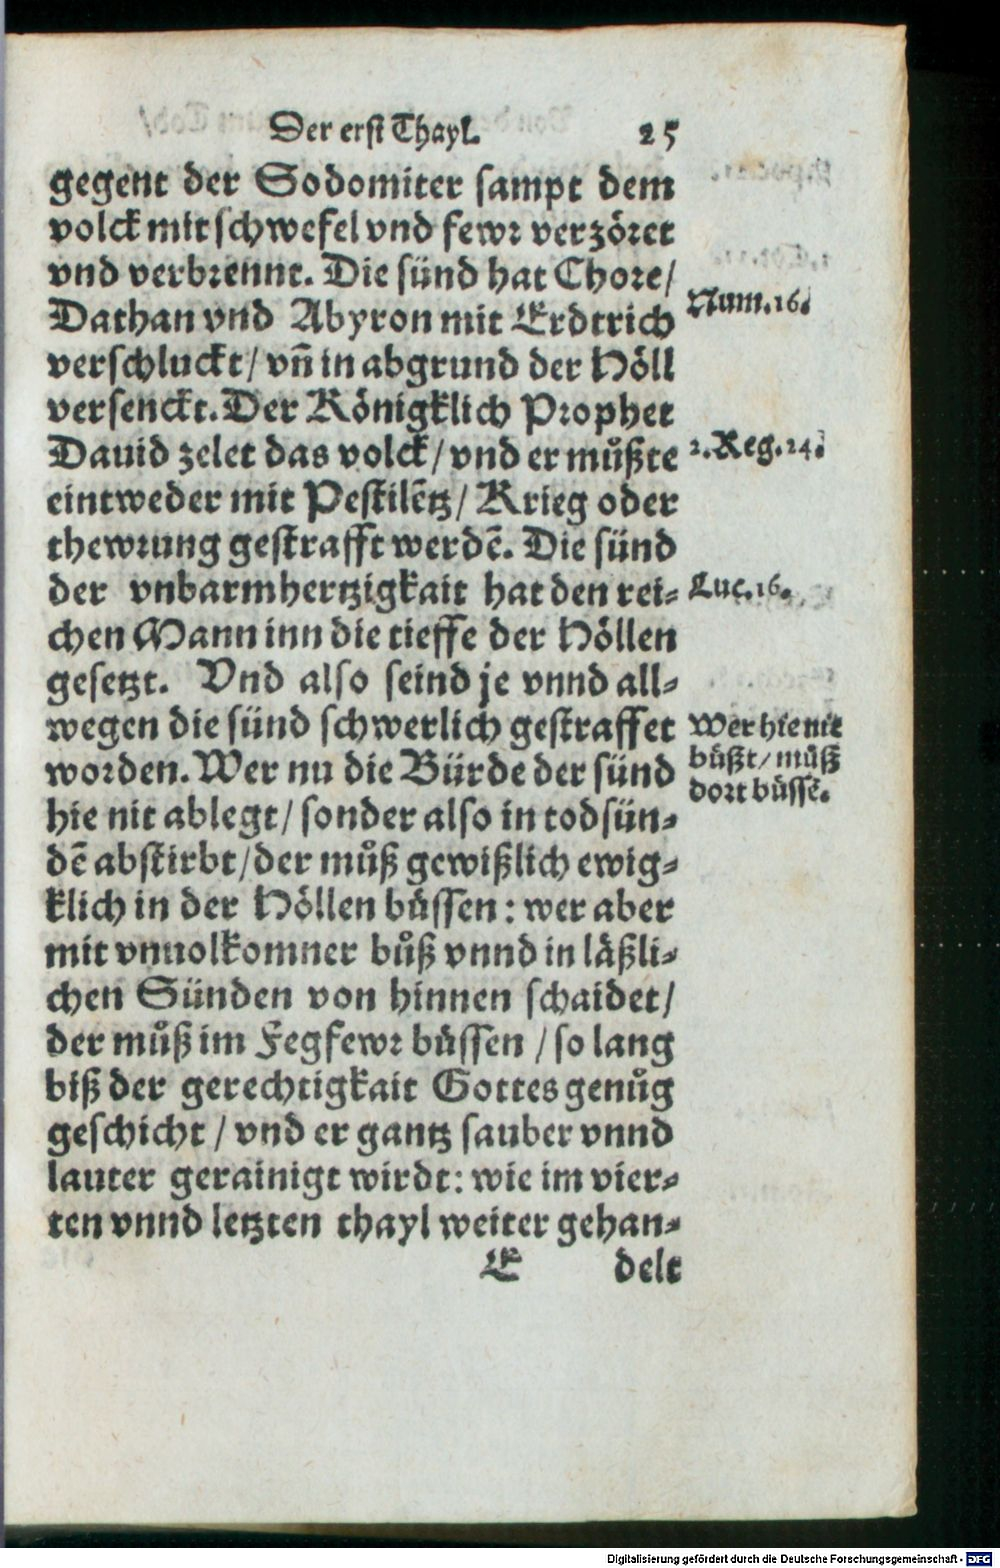 Der erst Thayl. 25
gegent der Sodomiter sampt dem
volck mit schwefel vnd fewr verzöret
vnd verbrennt. Die sünd hat Chore/
Dathan vnd Abyron mit Erdtrich
Num.16.
verschluckt/ vñ in abgrund der Höll
versenckt. Der Königklich Prophet
Dauid zelet das volck/ vnd er můßte
2.Reg.24.
eintweder mit Pestilẽtz/ Krieg oder
thewrung gestrafft werdẽ. Die sünd
der vnbarmhertzigkait hat den rei⸗
Luc.16.
chen Mann inn die tieffe der Höllen
gesetzt. Vnd also seind je vnnd all⸗
wegen die sünd schwerlich gestraffet
Wer hie nit
büßt/ můß
dort büssẽ.
worden. Wer nu die Bürde der sünd
hie nit ablegt/ sonder also in todsün⸗
dẽ abstirbt/ der můß gewißlich ewig⸗
klich in der Höllen büssen: wer aber
mit vnuolkomner bůß vnnd in läßli⸗
chen Sünden von hinnen schaidet/
der můß im Fegfewr büssen / so lang
biß der gerechtigkait Gottes genůg
geschicht / vnd er gantz sauber vnnd
lauter gerainigt wirdt: wie im vier⸗
ten vnnd letzten thayl weiter gehan⸗
E delt
Digitalisierung gefördert durch die Deutsche Forschungsgemeinschaft - DFG